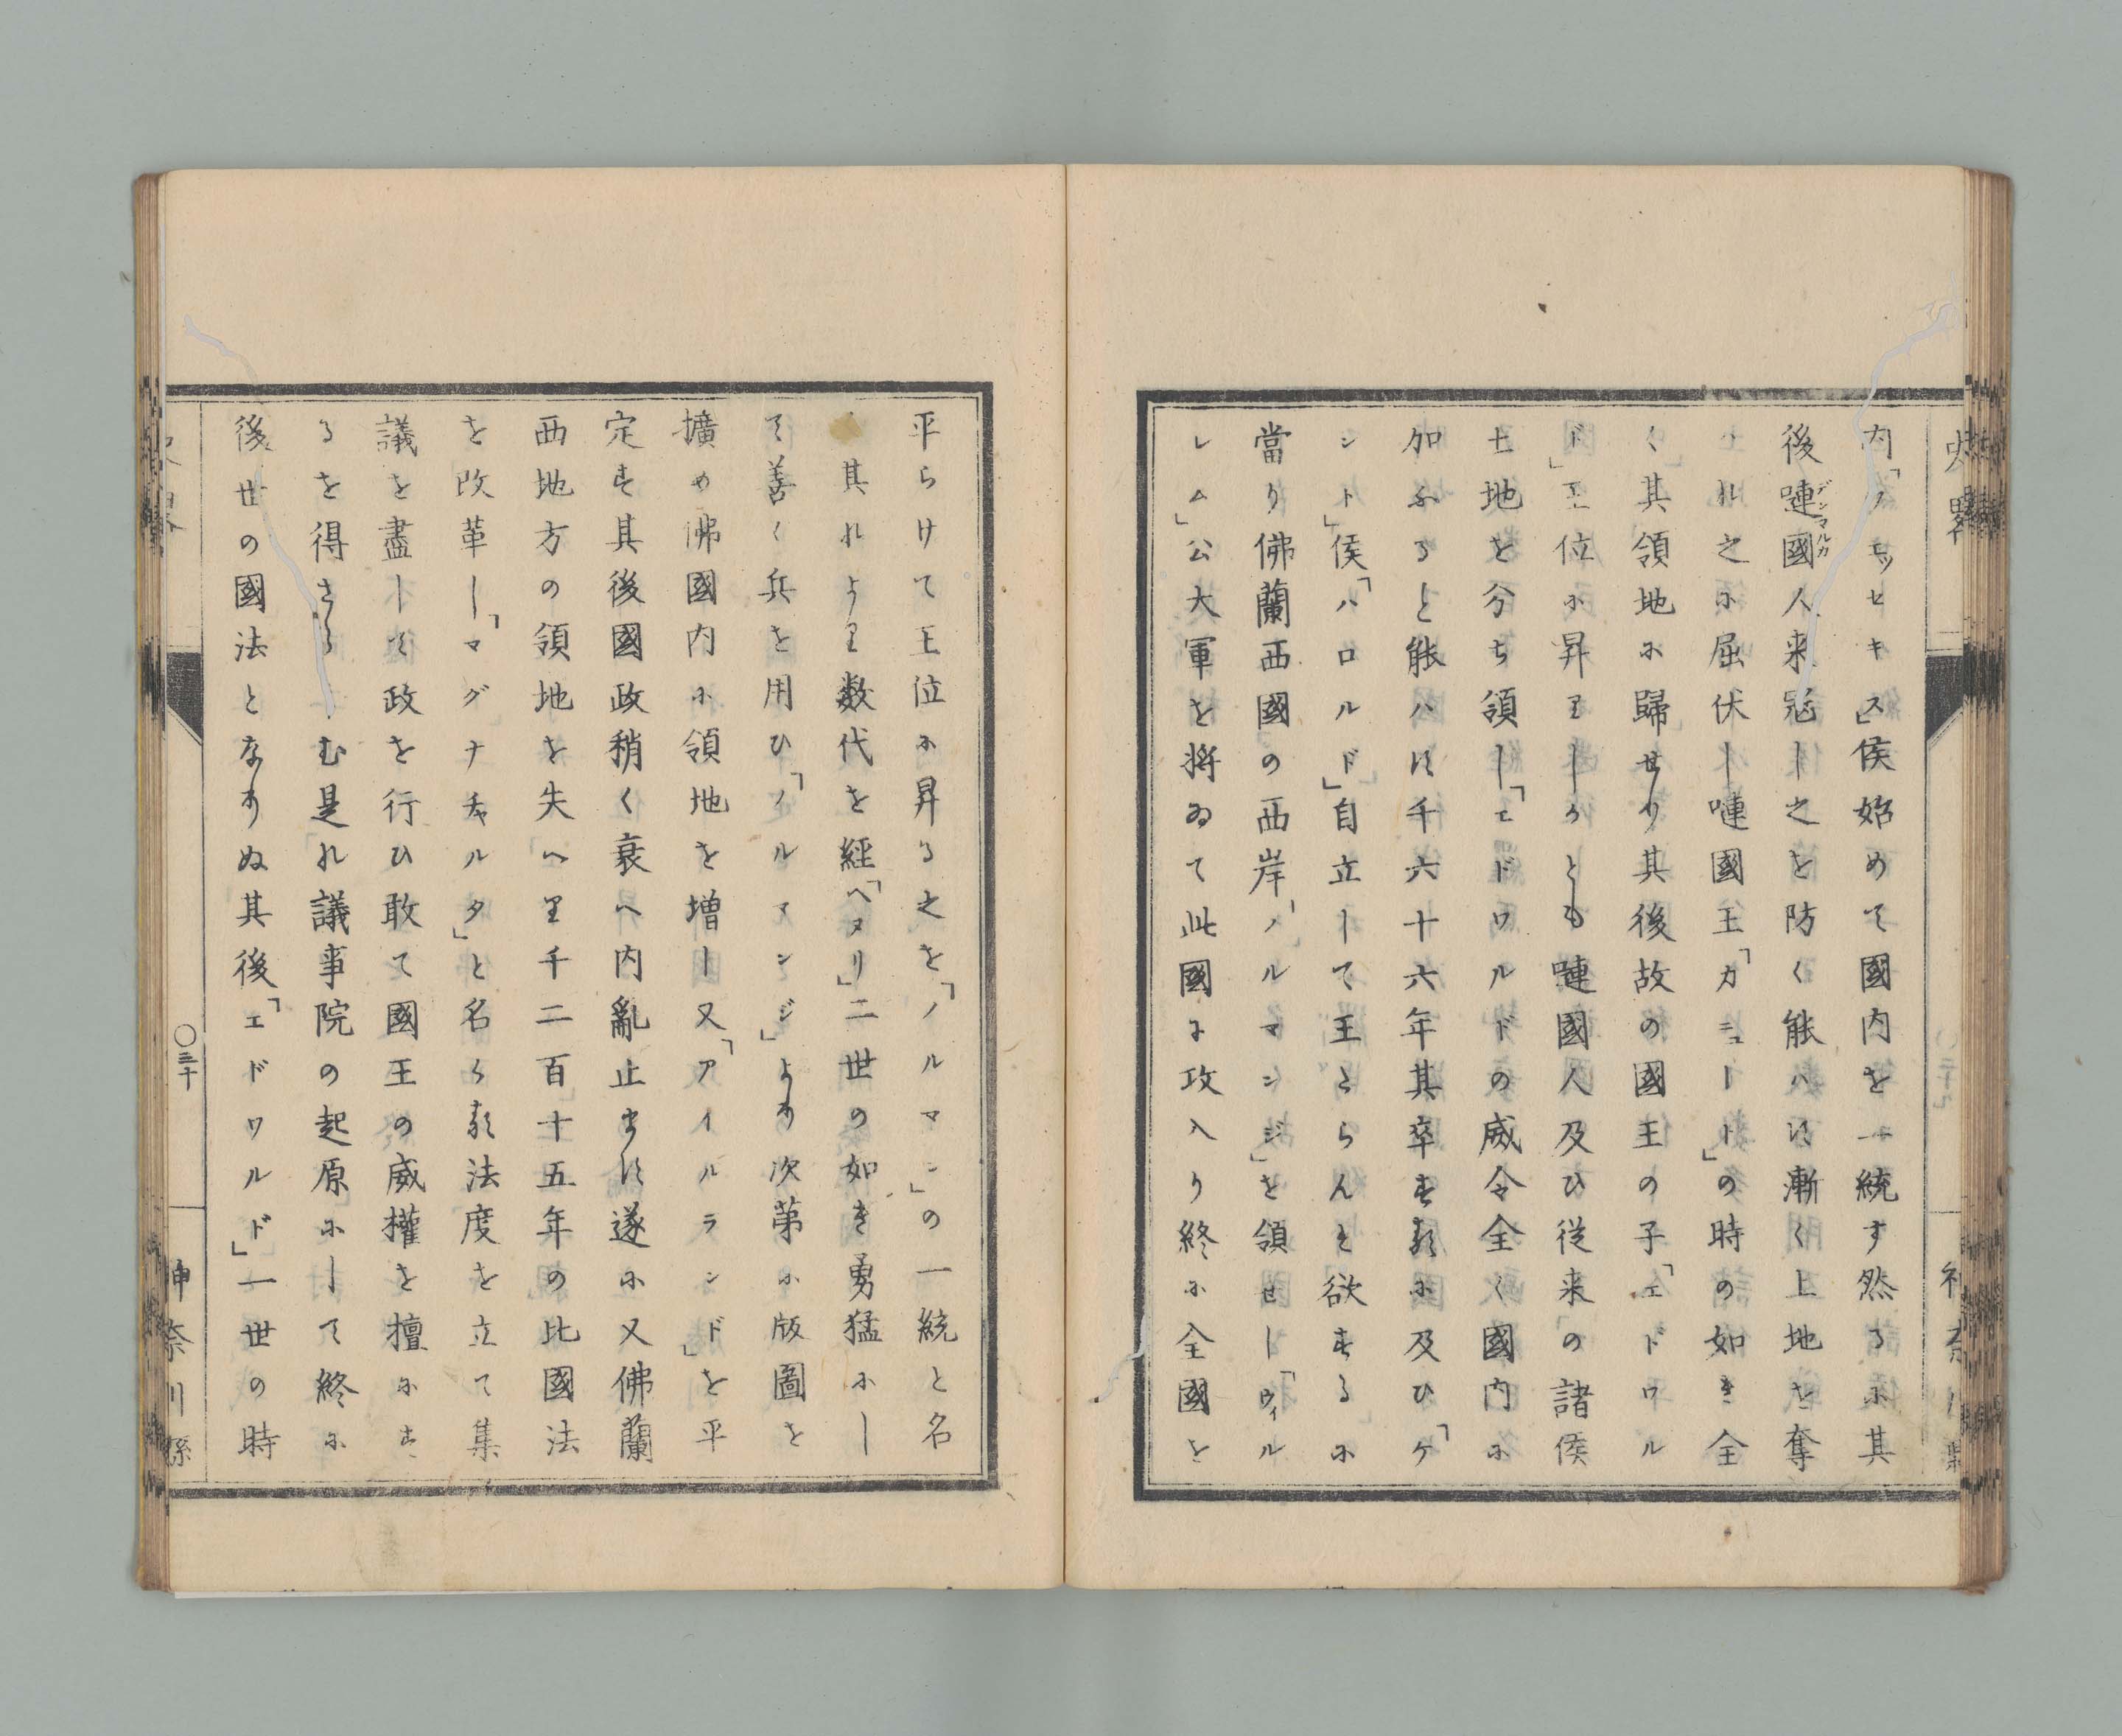 史略
神奈川縣
内「ウエッセキス」侯始めて國内を一統す然るに其
後嗹國人来冦し之を防く能ハす漸く土地を奪
ハれ之に屈伏し嗹國王「カニュート」の時の如き全
く其領地に歸せり其後故の國王の子「エドワル
ド」王位に昇りしかとも嗹國人及ひ従来の諸侯
土地を分ち領し「エドワルドの威令全く國内に
加ふること能ハす千六十六年其卒する に及ひ「ケ
ント」侯「ハロルド」自立して王とらんと欲するに
當り佛蘭西國の西岸「ノルマンジ」を領せし「ウィル
レム」公大軍を将ゐて此國に攻入り終に全國を
平らけて王位に昇る之を「ノルマン」の一統と名
く其れより数代を經「ヘヌリ」二世の如き勇猛にし
て善く兵を用ひ「ノルマンジ」より次第に版圖を
擴め佛國内に領地を増し又「アイルランド」を平
定す其後國政稍く衰へ内亂止ます遂に又佛蘭
西地方の領地を失へり千二百十五年の比國法
を改革し「マグナチャルタ」と名くる法度を立て集
議を盡して政を行ひ敢て國王の威權を擅にす
るを得さらしむ是れ議事院の起原にして終に
後世の國法となりぬ其後「エドワルド」一世の時
史略
○三十
神奈川縣
デンマルカ